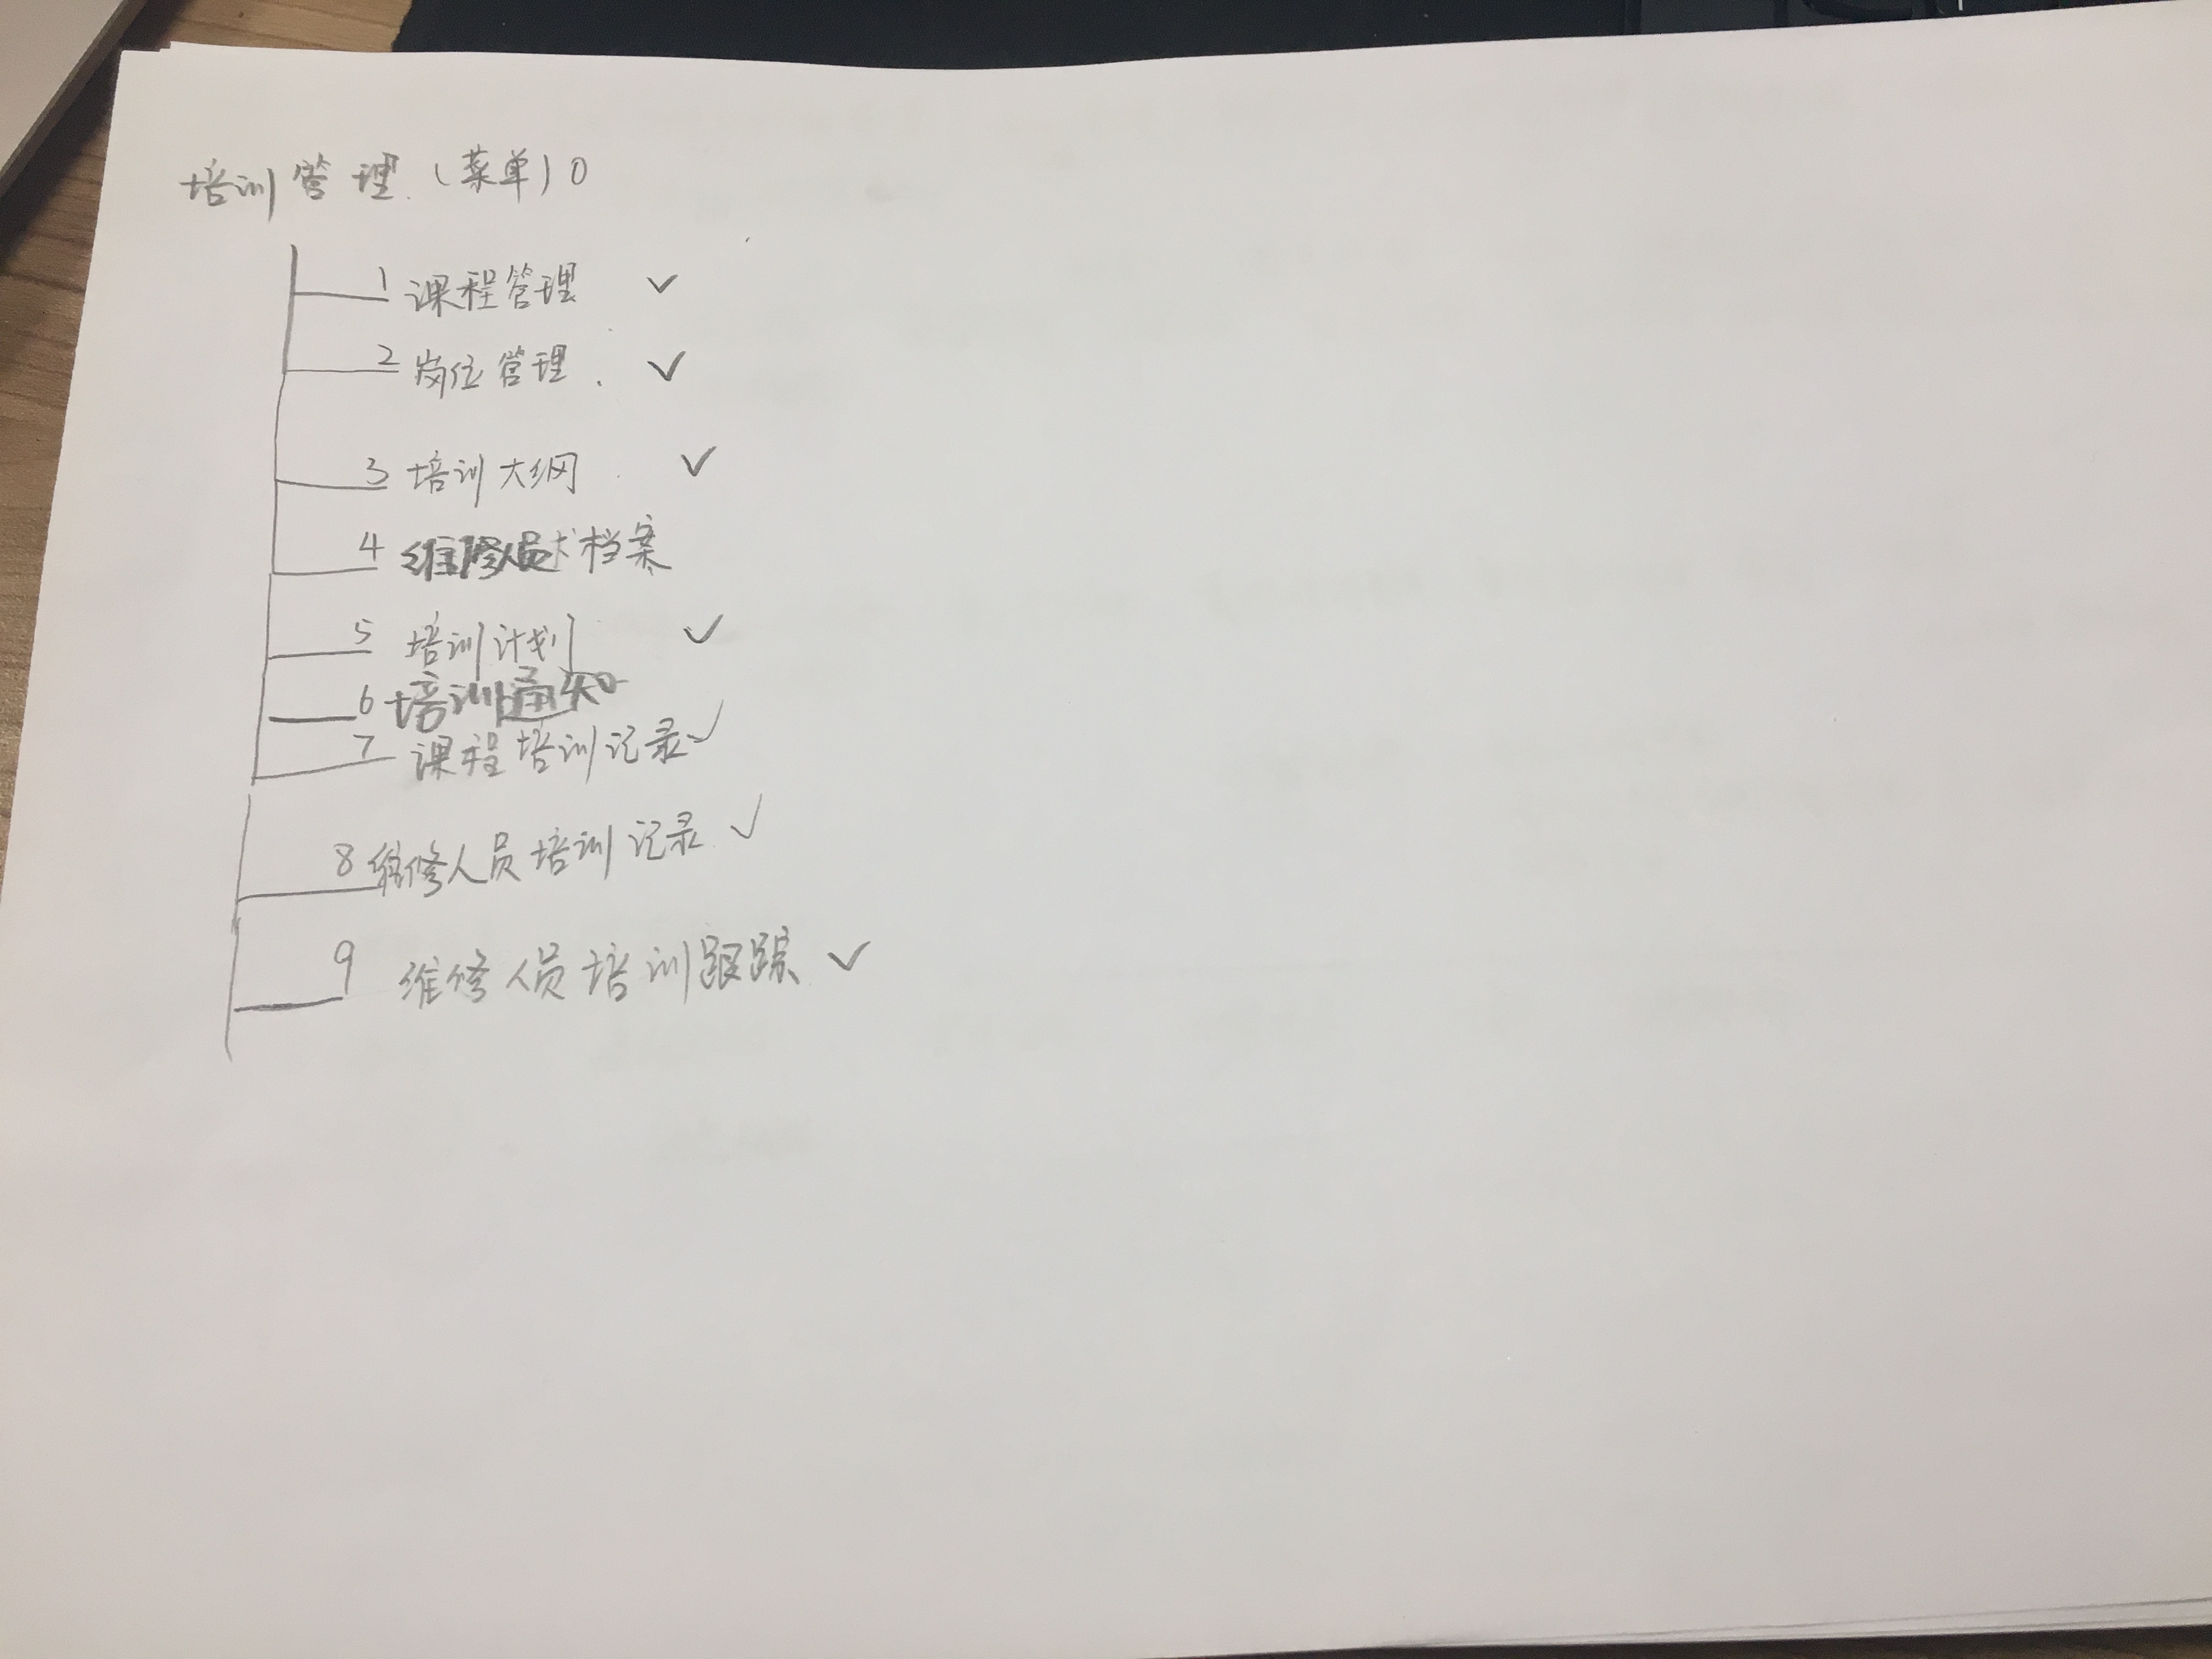 培训管理（菜单）0
1 课程管理 ✓
2 岗位管理 ✓
3 培训大纲 ✓
4 维修人员 档案
5 培训计划 ✓
6 培训通知
7 课程培训记录 ✓
8 维修人员培训记录 ✓
9 维修人员培训跟踪 ✓